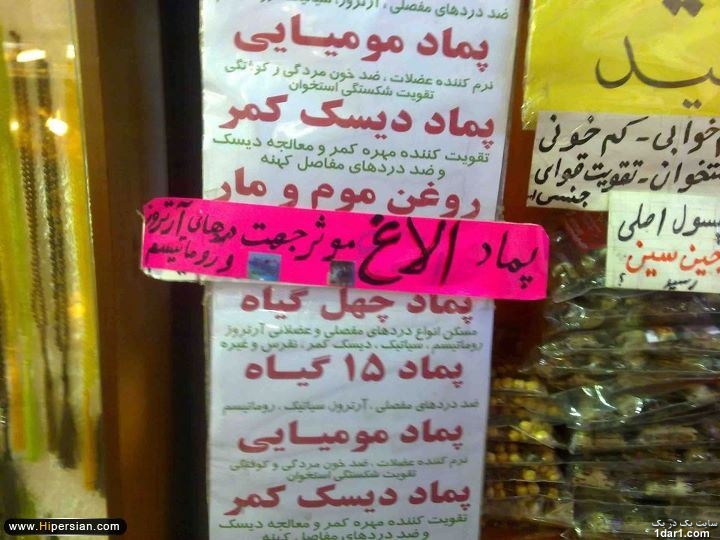 ضد دردهای مفصلی ، آرتروز، سیاتیک
پماد مومیایی
نرم کننده عضلات ، ضد خون مردگی و کوفتگی
تقویت شکستگی استخوان
پماد دیسک کمر
تقویت کننده مهره کمر و معالجه دیسک
و ضد دردهای مفاصل کهنه
روغن موم و مار
پماد الاغ موثر جهت دردهای آرتروز
و روماتیسم
پماد چهل گیاه
مسکن انواع دردهای مفصلی و عضلانی آرتروز
روماتیسم ، سیاتیک ، دیسک کمر ، نقرس و غیره
پماد ۱۵ گیاه
ضد دردهای مفصلی ، آرتروز، سیاتیک ، روماتیسم
پماد مومیایی
نرم کننده عضلات ، ضد خون مردگی و کوفتگی
تقویت شکستگی استخوان
پماد دیسک کمر
تقویت کننده مهره کمر و معالجه دیسک
و ضد دردهای مفاصل کهنه
ید
خوابی - کم خونی
تخوان - تقویت قوای
جنسی
سول اصلی
جین سین
رسید
www.Hipersian.com
سایت یک در یک
1dar1.com